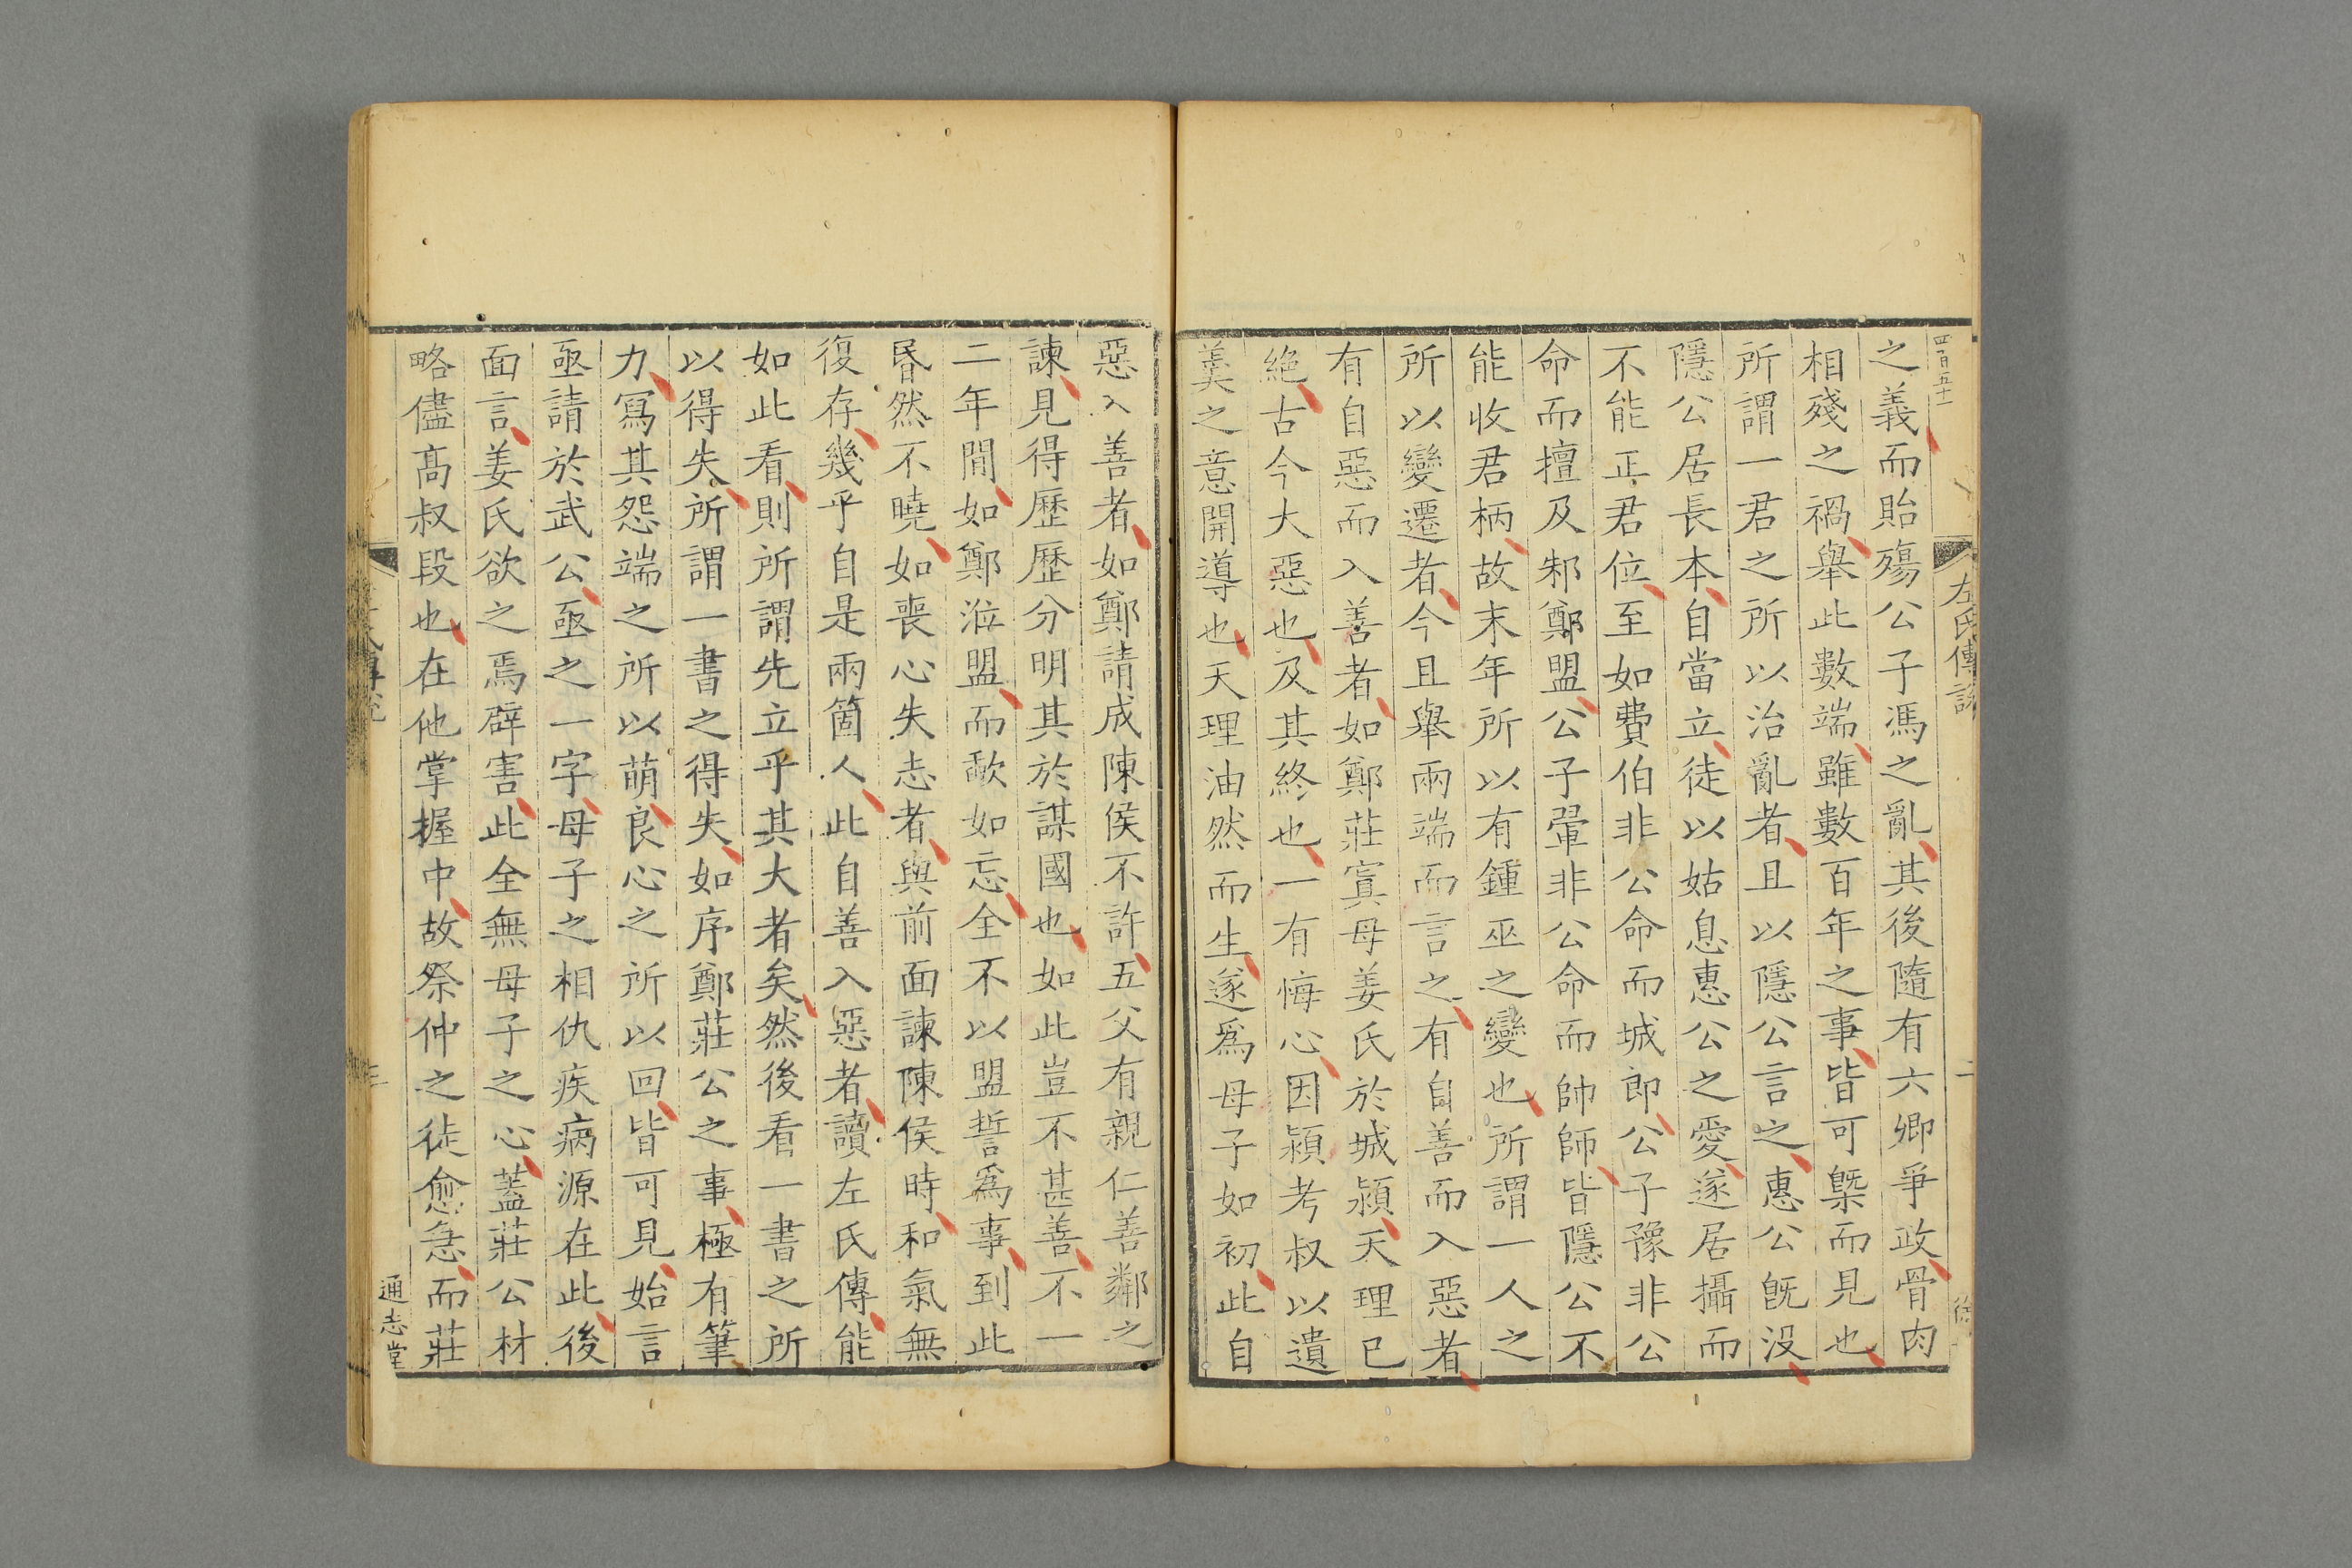 四百五十一
左氏傳說
二
之義而貽殤公子馮之亂其後隨有六卿爭政骨肉
相殘之禍舉此數端雖數百年之事皆可槩而見也
所謂一君之所以治亂者且以隱公言之惠公旣没
隱公居長本自當立徒以姑息惠公之愛遂居攝而
不能正君位至如費伯非公命而城郎公子豫非公
命而擅及邾鄭盟公子翬非公命而帥師皆隱公不
能收君柄故末年所以有鍾巫之變也所謂一人之
所以變遷者今且舉兩端而言之有自善而入惡者
有自惡而入善者如鄭莊寘母姜氏於城潁天理已
絶古今大惡也及其終也一有悔心因潁考叔以遺
羮之意開導也天理油然而生遂爲母子如初此自
惡入善者如鄭請成陳侯不許五父有親仁善鄰之
諫見得歷歷分明其於謀國也如此豈不甚善不一
二年間如鄭涖盟而歃如忘全不以盟誓爲事到此
昬然不曉如喪心失志者與前面諫陳侯時和氣無
復存幾乎自是兩箇人此自善入惡者讀左氏傳能
如此看則所謂先立乎其大者矣然後看一書之所
以得失所謂一書之得失如序鄭莊公之事極有筆
力寫其怨端之所以萌良心之所以回皆可見始言
亟請於武公亟之一字母子之相仇疾病源在此後
面言姜氏欲之焉辟害此全無母子之心蓋莊公材
略儘高叔段也在他掌握中故祭仲之徒愈急而莊
通志堂